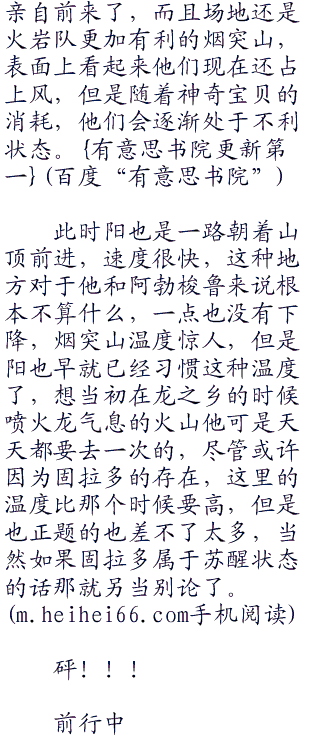 亲自前来了，而且场地还是
火岩队更加有利的烟突山，
表面上看起来他们现在还占
上风，但是随着神奇宝贝的
消耗，他们会逐渐处于不利
状态。{有意思书院更新第
一}(百度“有意思书院”)
此时阳也是一路朝着山
顶前进，速度很快，这种地
方对于他和阿勃梭鲁来说根
本不算什么，一点也没有下
降，烟突山温度惊人，但是
阳也早就已经习惯这种温度
了，想当初在龙之乡的时候
喷火龙气息的火山他可是天
天都要去一次的，尽管或许
因为固拉多的存在，这里的
温度比那个时候要高，但是
也正题的也差不了太多，当
然如果固拉多属于苏醒状态
的话那就另当别论了。
(m.heihei66.com手机阅读)
砰！！！
前行中